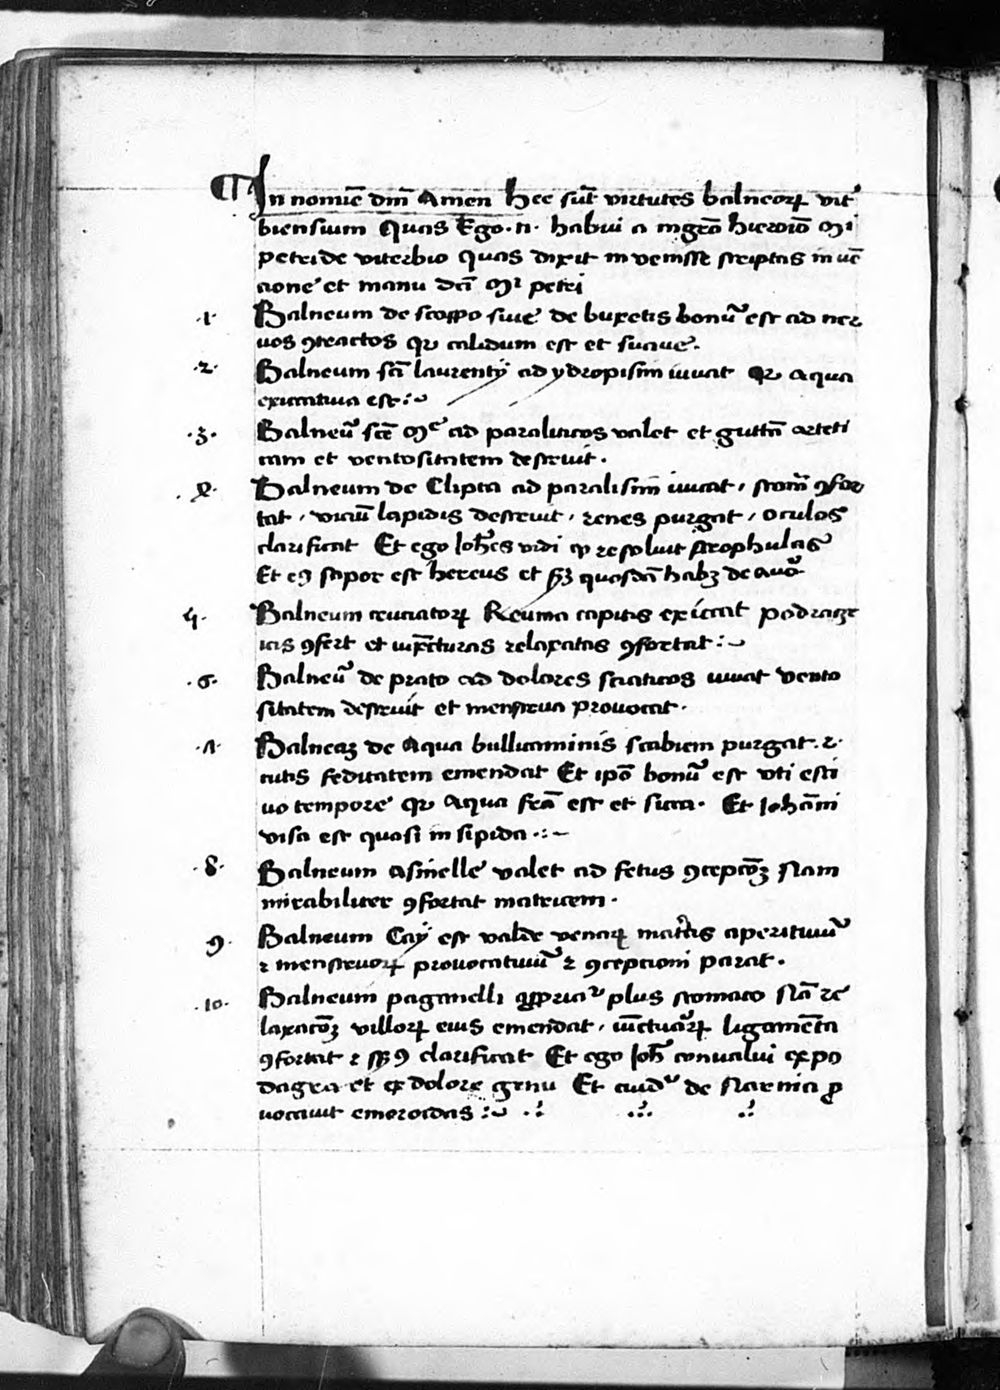 In nomīe dm̄ Amen Hec sūt virtutes balneoꝝ vit
biensium Quas Ego .n. habui a mgr̄o hieroīo Mⁱ
petri de viterbio quas dixit invenisse scriptas in ue
cione et manu dc̄i Mⁱ petri
.1. Balneum de scoppo siue de buxetis bonū est ad ner
uos ꝯtractos qꝛ calidum est et suaue.
.2. Balneum sc̄i laurentij ad ydropisim iuuat Qꝛ aqua
exiccatiua est:~
.3. Balneū sc̄e Mᵉ ad paraliticos valet et guttā arteti
cam et ventositatem destruit.
.4. Balneum de Clipta ad paralisim iuuat, stom̄ ꝯfor
tat, viciū lapidis destruit, renes purgat, oculos
clarificat Et ego Ioh̄es vidi ꝙ resoluit strophulas
Et eꝰ sapor est hereus et quosdā habꝫ de
5. Balneum cruciatoꝝ Reuma capitis exiccat podragr
icis ꝯfert et iūcturas relaxatas ꝯfortat:~
.6. Balneū de prato ad dolores sciaticos iuuat vento
sitatem destruit et menstrua prouocat.
.7. Balneaꝫ de Aqua bullicaminis scabiem purgat. ⁊.
cutis feditatem emendat Et ip̄o bonū est vti esti
uo tempore qꝛ Aqua est et sicca. Et Iohāni
visa est quasi insipida.:~
.8. Balneum asinelle valet ad fetus ꝯcepcōꝫ Nam
mirabiliter ꝯfortat matricem.
9. Balneum Cay est valde venaꝝ matⁱcis aperitiuū
⁊ menstruoꝝ prouocatiuū ⁊ ꝯcepcioni parat.
.10. Balneum paganelli plus stomaco Nā re
laxacōꝫ villoꝝ eius emendat, iūctuaꝝ ligamēta
ꝯfortat ⁊ clarificat Et ego Ioh̄ conualui ex po
dagra et ex dolore genu Et cuidᵃ de Narnia ꝓ
uocauit emoroidas:~